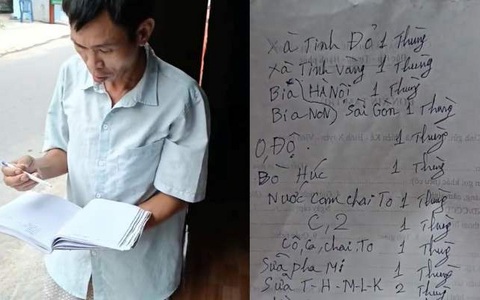 Xà Tinh Đỏ 1 Thùng
Xà Tinh Vàng 1 Thùng
Bia HÀ Nội 1 Thùng
Bia NoN Sài Gòn 1 Thùng
O, Độ. 1 Thùng
Bò Húc 1 Thùng
Nước Cam chai To 1 Thùng
C, 2 1 Thùng
Cô, Ca, chai To 1 Thùg
Sữa pha Mì 1 Thùg
Sữa T-H-M-L-K 2 Thùg